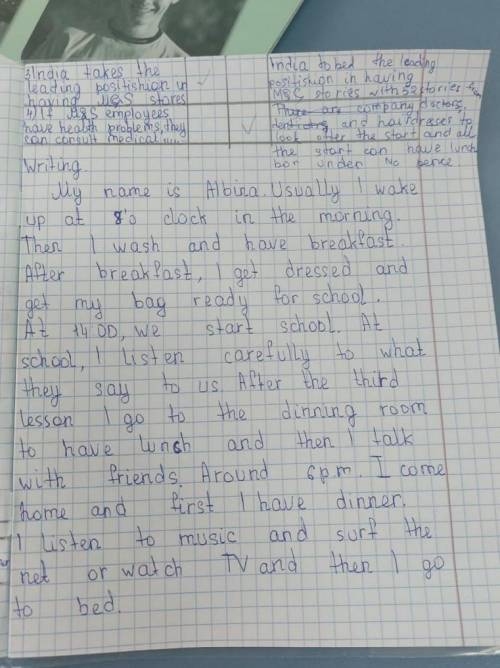 3)India takes the
leading positishion in
having M&S stores
4) If M&S employees
have health problems, they
can consult medical.....
India to bed the leading
positishion in having
M&C stories with 52 stories
There are company doctors,
dentists and hairdresses to
look after the start and all
the start can have lunch
bon under No pence
Writing.
My name is Albina. Usually I wake
up at 8'o clock in the morning.
Then I wash and have breakfast.
After breakfast, I get dressed and
get my bag ready for school.
At 14:00, we start school. At
school, I listen carefully to what
they say to us. After the third
lesson I go to the dinning room
to have lunch and then I talk
with friends. Around 6pm. I come
home and first I have dinner.
I listen to music and surf the
net or watch TV and then I go
to bed.